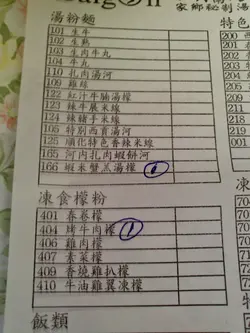 Saigon
家鄉秘制湯
湯粉麵
特色
101 生牛
102 生熟
103 生肉牛丸
104 牛丸
110 扎肉湯河
109 雞絲
122 紅汁牛腩湯檬
123 辣牛展米線
124 辣豬手米線
105 特別西貢湯河
125 順化特色香辣米線
165 河內扎肉蝦餅河
166 蝦米蟹羔湯檬
200
201
凍食檬粉
401 春卷檬
404 烤牛肉檬 1
406 雞肉檬
407 素菜檬
409 香燒雞扒檬
410 牛油雞翼凍檬
飯類